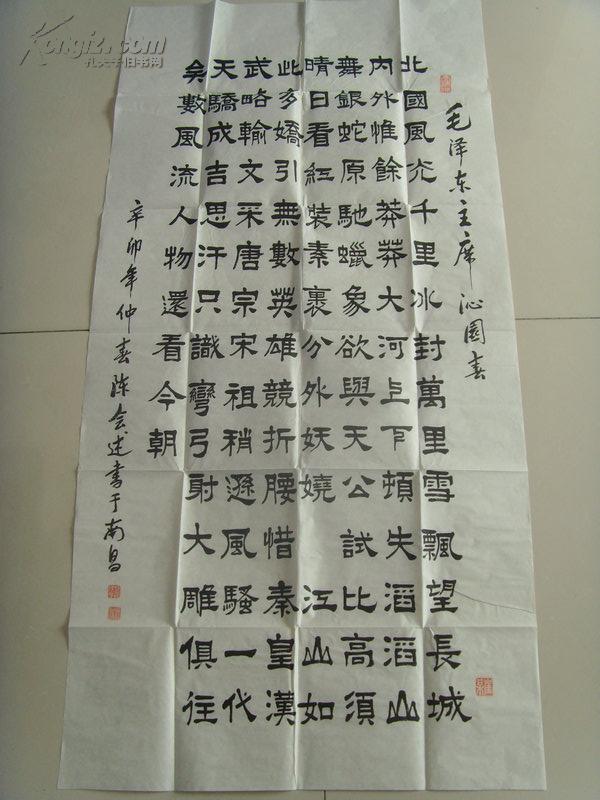 Kongfz.com
孔夫子旧书网
毛泽东主席 沁园春
北國風光千里冰封萬里雪飄望長城
内外惟餘莽莽大河上下頓失滔滔山
舞銀蛇原馳蠟象欲與天公試比高須
晴日看紅裝素裹分外妖嬈 江山如
此多嬌引無數英雄競折腰惜秦皇漢
武略輸文采唐宗宋祖稍遜風騷一代
天驕成吉思汗只識彎弓射大雕俱往
矣數風流人物還看今朝
辛卯年仲春陈会述書于南昌